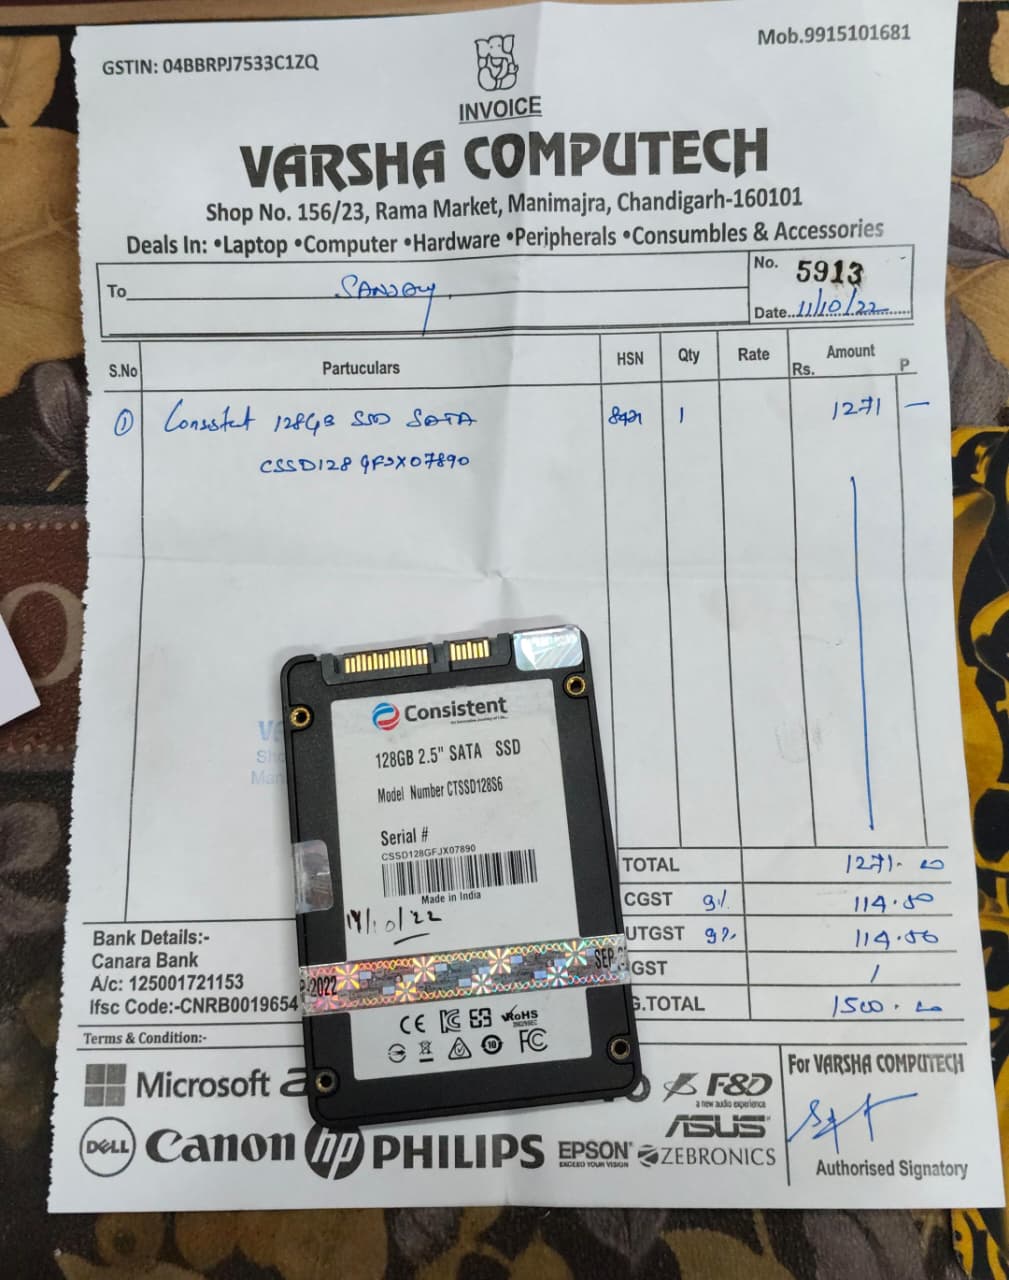 GSTIN: 04BBRPJ7533C1ZQ
Mob.9915101681
INVOICE
VARSHA COMPUTECH
Shop No. 156/23, Rama Market, Manimajra, Chandigarh-160101
Deals In: •Laptop •Computer •Hardware •Peripherals •Consumbles & Accessories
To SANJAY
No. 5913
Date.. 11/10/22
S.No Partuculars HSN Qty Rate Amount
Rs. P
① Consstent 128GB SSD SATA 1 1271 —
CSSD128GFJX07890
Consistent
128GB 2.5" SATA SSD
Model Number CTSSD128S6
Serial #
CSSD128GFJX07890
Made in India
/10/22
2022 SEP
CE RoHS
10 FC
TOTAL 1271.00
CGST 9% 114.50
UTGST 9% 114.50
GST /
G.TOTAL 1500.00
Bank Details:-
Canara Bank
A/c: 125001721153
Ifsc Code:-CNRB0019654
Terms & Condition:-
For VARSHA COMPUTECH
Microsoft a
F&D
a new audio experience
ASUS
DELL Canon hp PHILIPS EPSON ZEBRONICS
EXCEED YOUR VISION
Authorised Signatory